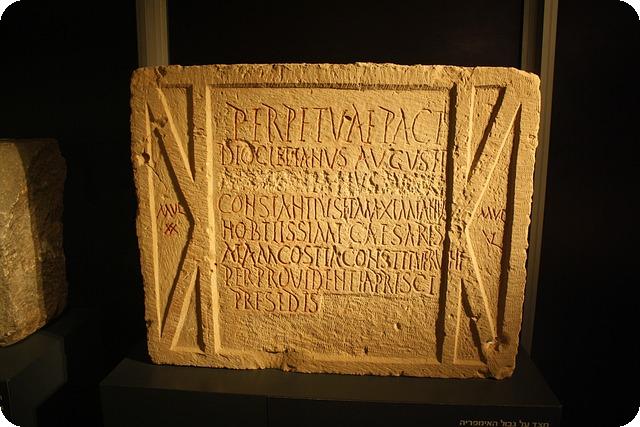 PERPETVAE PACI
DIOCLETIANVS AVGVSTI
CONSTANTIVS ET MAXIMIANVS
NOBILISSIMI CAESARES
ALAM COSTIA CONSTITVERVNT
PER PROVIDENTIA PRISCI
PRESEDIS
MVL
XX
MVL
XL
מצד על גבול האימפריה